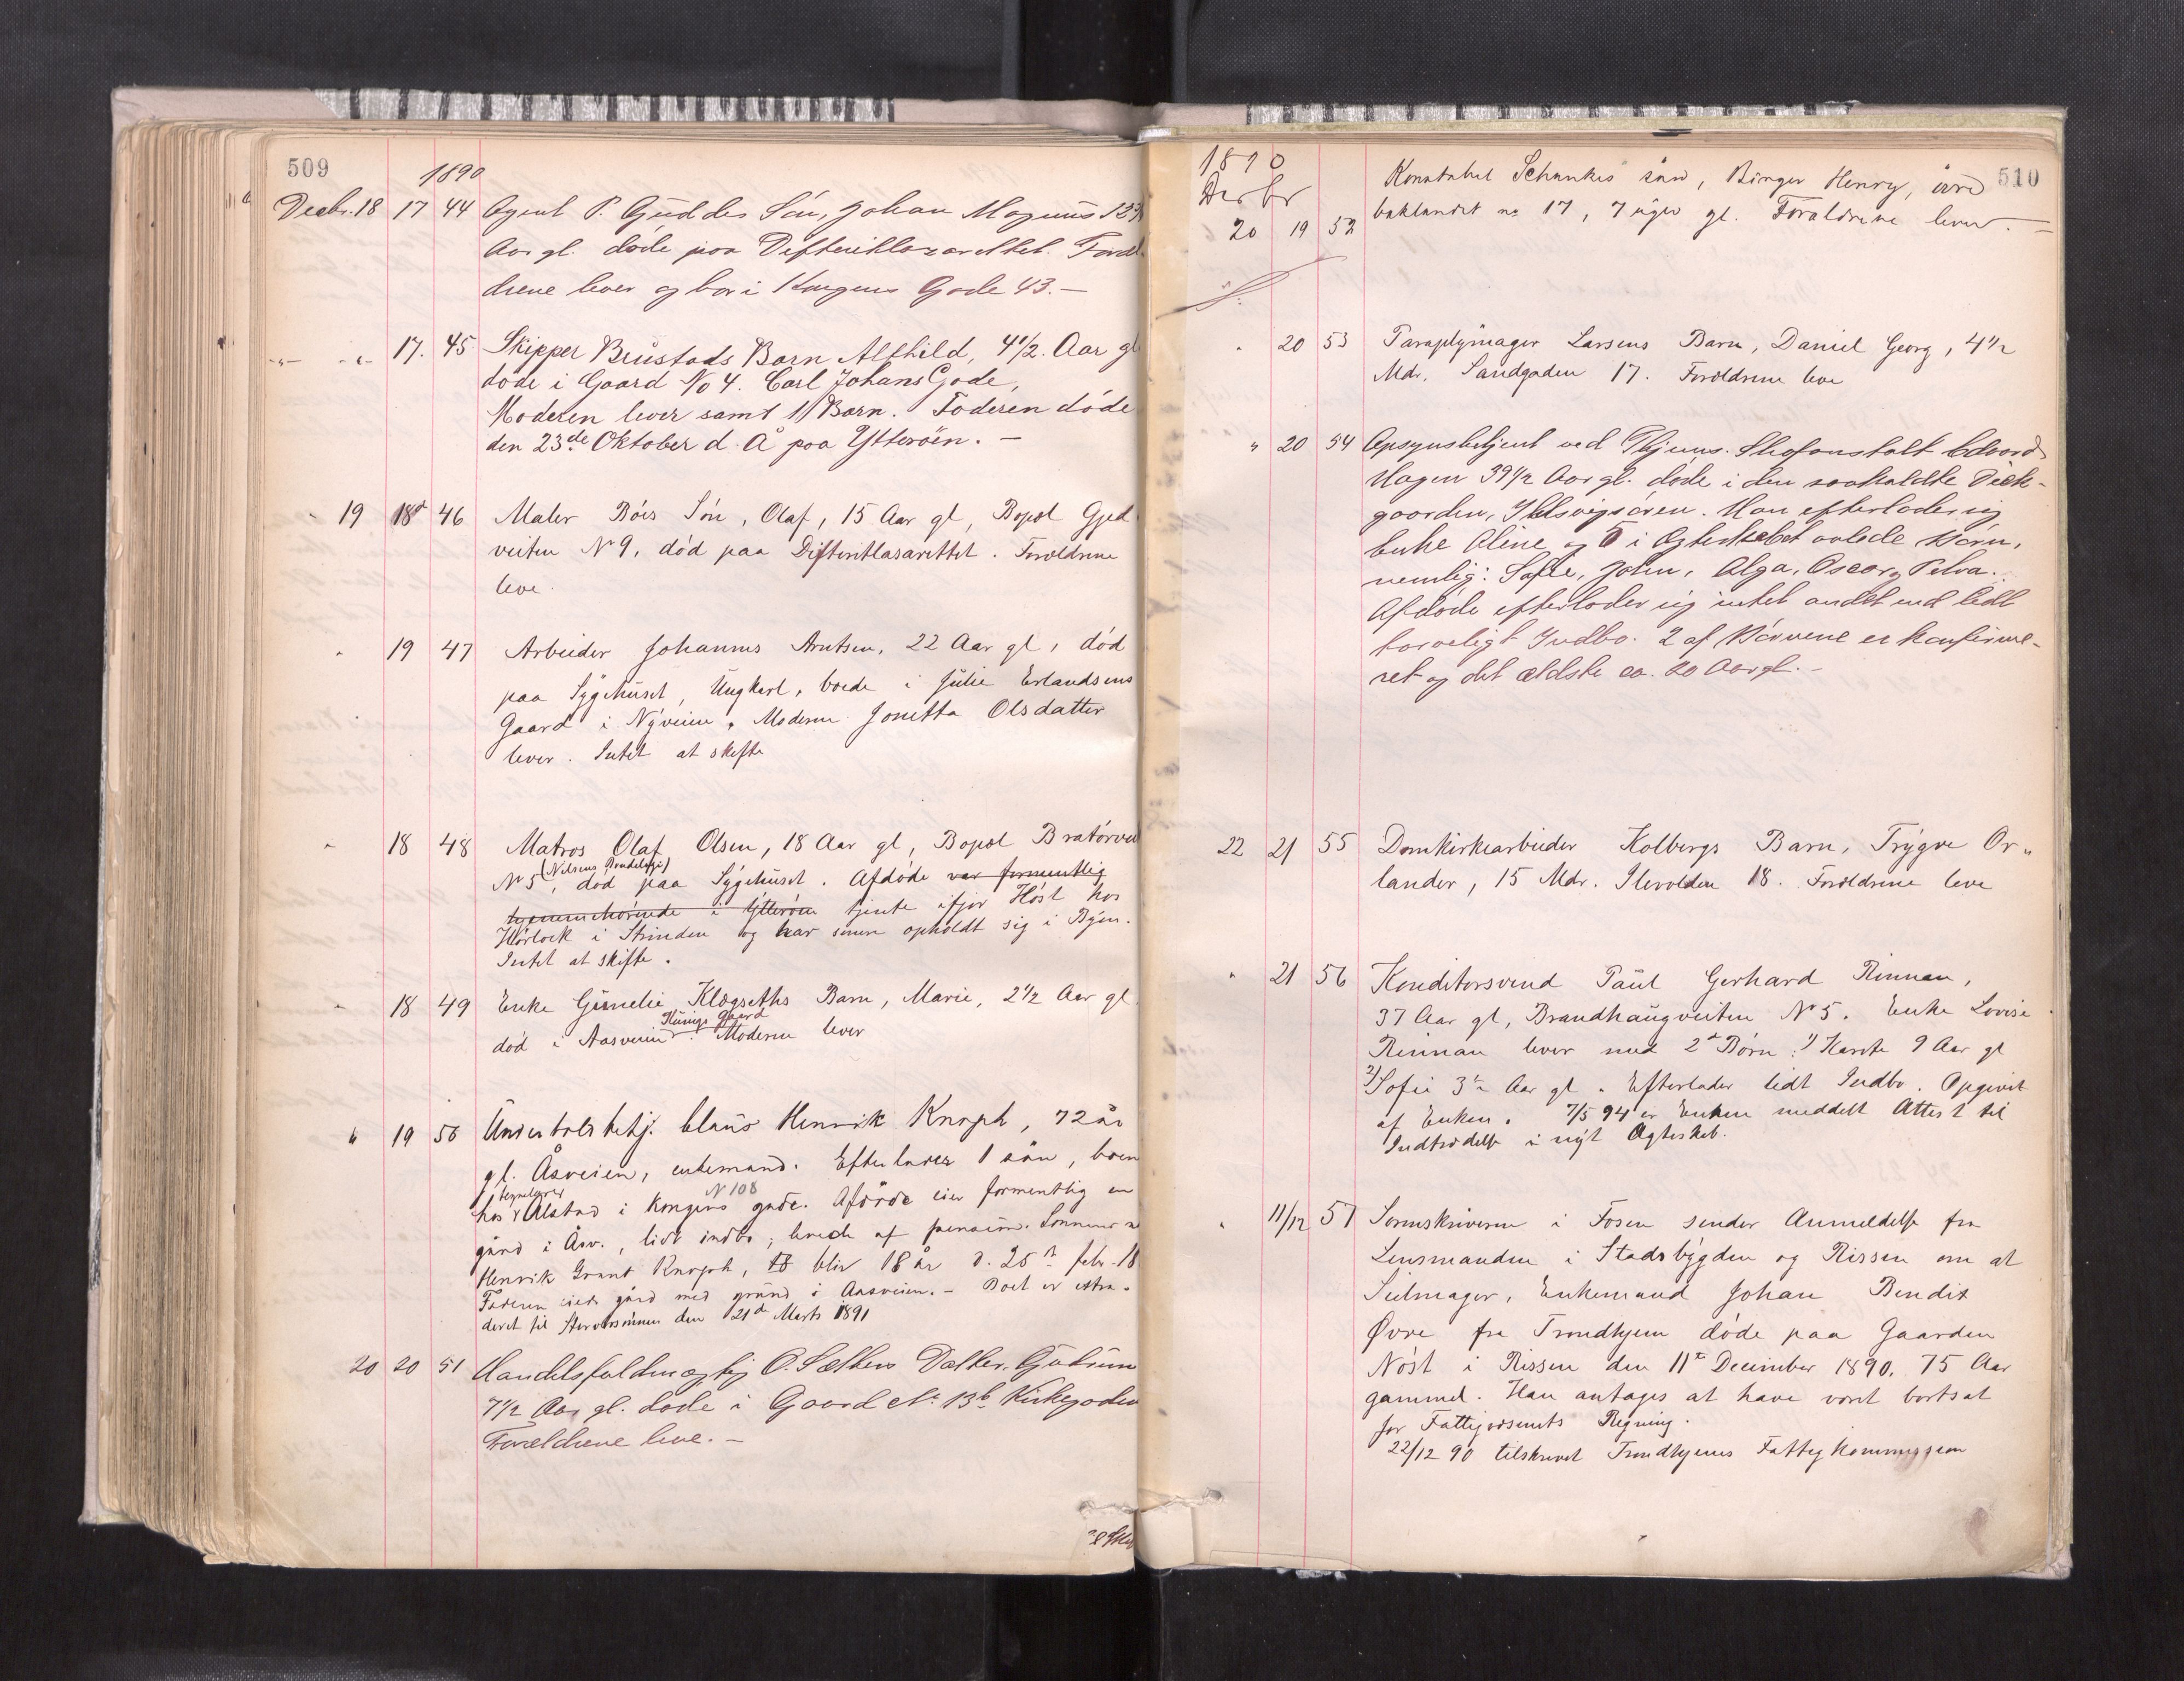 509
1890
Decbr. 18 17 44 Agent P. Gjuddes Sön, Johan Magnus
Aar gl. døde paa Difteritlazarettet. Foræl-
drene lever og bor i Kongens Gade 43. —
-"- -"- 17. 45. Skipper Brustads Barn Alfhild, 4 1/2. Aar gl
døde i Gaard No 4. Carl Johans Gade,
Moderen lever samt 11 Børn. Faderen døde
den 23de Oktober d. Å paa Ytterøen. —
" 19 18d 46 Maler Böes Sön, Olaf, 15 Aar gl, Bopæl Gjed
veiten N 9, död paa Difteritlasarettet. Forældrene
leve.
" 19 47 Arbeider Johannes Arntsen, 22 Aar gl, död
paa Sygehuset, Ungkarl, boede i Julie Erlandsens
Gaard i Nyveien. Moderen Jonetta Olsdatter
lever. Intet at skifte
" 18 48 Matros Olaf Olsen, 18 Aar gl, Bopæl Bratörvei
(Nilsens Bondelogi)
N 5, död paa Sygehuset. Afdöde var formentlig
hjemmehörende i Ytteröen tjente ifjor Höst hos
Hörlock i Strinden og har senere opholdt sig i Byen.
Intet at skifte.
" 18 49 Enke Gunelie Klægseths Barn, Marie, 2 1/2 Aar gl
Kunigs Gaard
död i Aasveien. Moderen lever
" 19 50 Undertoldbetj. Claus Henrik Knoph, 72 år
gl. Åsveien, enkemand. Efterlader 1 sön, boen
N 108
hos Alstad i Kongens gade. Afdøde eier formentlig en
gård i Åsv., lidt indbo; levede af pension. Sönnens n
Henrik Grant Knoph, bliv 18 år d. 25 febr. 18
Faderen eiede gård med grund i Aasveien. — Boet er extra-
deret til Stervboesönnen den 21de Marts 1891
20 20 51 Handelsfuldmægtig O. Sæthers Datter, Gudrun
7 1/2 Aar gl. døde i Gaard No 13b Kirkegaden
Forældrene leve. —
1890
Decbr
510
20 19 52 Konstabel Schankes sön, Birger Henry, övre
baklandet no 17, 7 uger gl. Forældrene lever. —
" 20 53 Paraplymager Larsens Barn, Daniel Georg, 4 1/2
Mdr. Sandgaden 17. Forældrene leve
" 20 54 Opsynsbetjent ved Thjems. Strafanstalt Edvard
Hagen 39 1/2 Aar gl. døde i den saakaldte Dick-
gaarden, Ihlsvigsören. Han efterlader sig
Enke Aline og 5 i Ægteskabet avlede Børn,
nemlig: Sofie, John, Alga, Oscar og Petra.
Afdøde efterlader sig intet andet end lidt
tarveligt Indbo. 2 af Børnene er konfirme-
ret og det ældste ca. 20 Aar gl. —
22 21 55 Domkirkearbeider Kolbergs Barn, Trygve Or-
lander, 15 Mdr. Ilevolden 18. Forældrene leve
" 21 56 Konditorsvend Paul Gerhard Rinnan,
37 Aar gl, Brandhaugveiten No 5. Enke Lovise
Rinnan lever med 2 Børn: 1) Karste 9 Aar gl
2) Sofie 3 1/2 Aar gl. Efterlader lidt Indbo. Opgivet
af Enken. 7/5 94 er Enken meddelt Attest til
Indtrædelse i nyt Ægteskab.
" 11/12 57 Sorenskriveren i Fosen sender Anmeldelse fra
Lensmanden i Stadsbygden og Rissen om at
Seilmager, Enkemand Johan Bendix
Øvre fra Trondhjem døde paa Gaarden
Nöst i Rissen den 11te December 1890. 75 Aar
gammel. Han antages at have været bortsat
for Fattigvæsenets Regning.
22/12 90 tilskrevet Trondhjems Fattigkommission